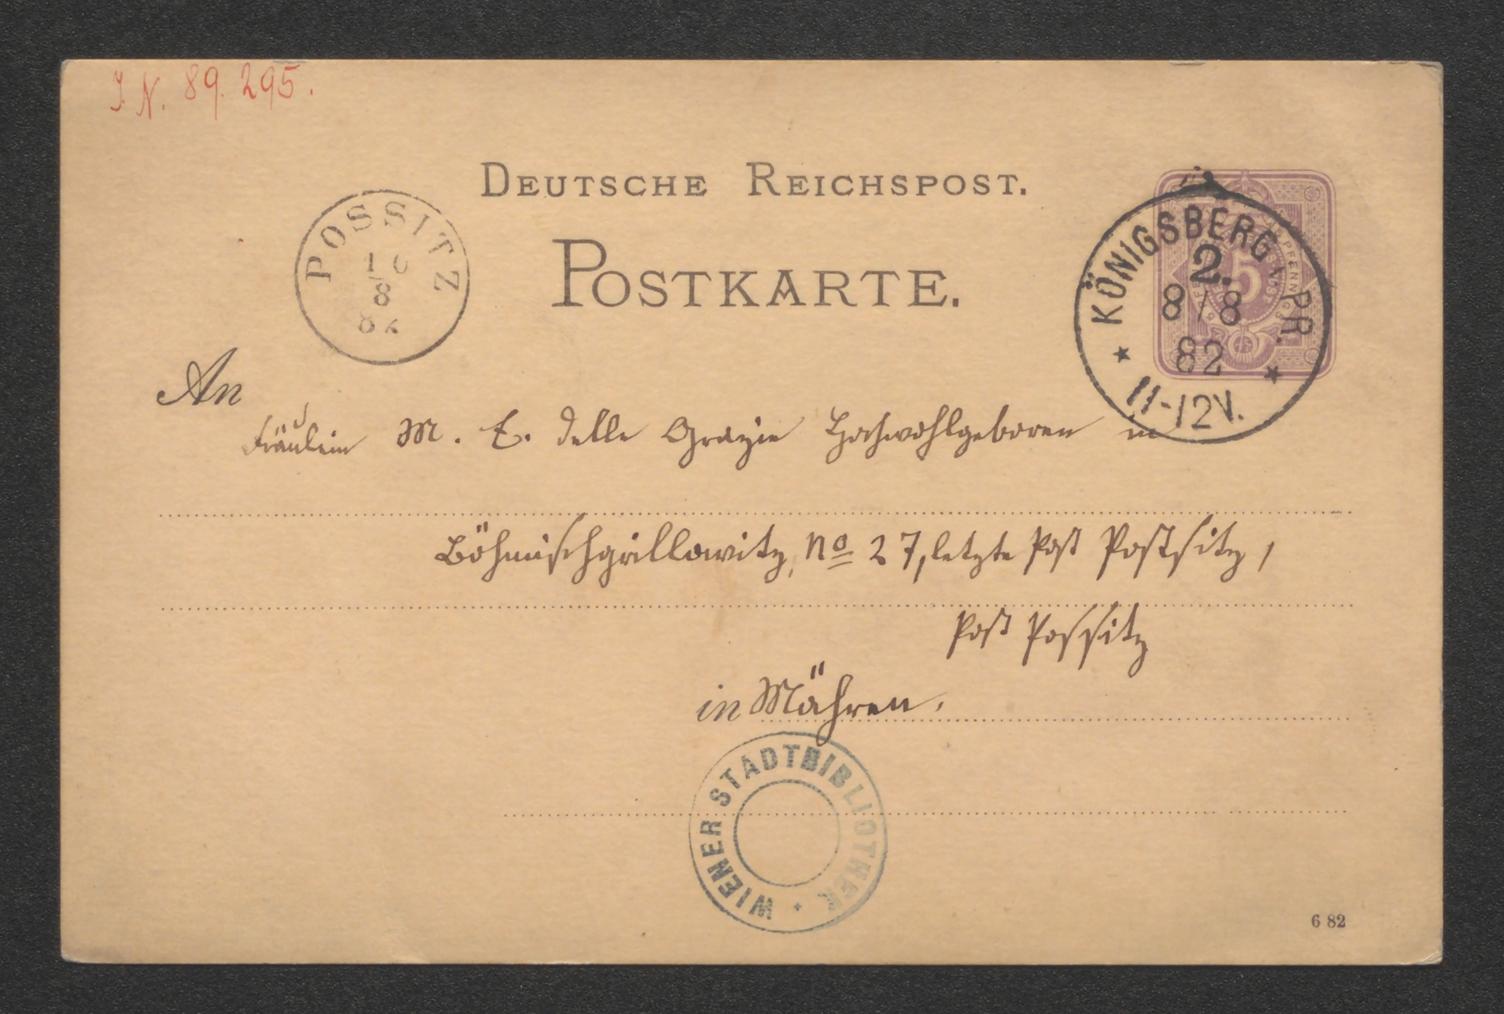 J. N. 89.295.
DEUTSCHE REICHSPOST.
POSTKARTE.
POSSITZ
10
8
82
KÖNIGSBERG i. PR.
2.
8/8
82
11-12V.
An
Fräulein M. E. delle Grazie Hochwohlgeboren in
Böhmischgrillowitz, No 27, letzte Post Postsitz,
Post Possitz
in Mähren.
WIENER STADTBIBLIOTHEK
6 82